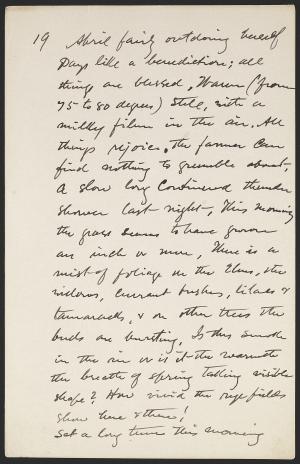 19 April fairly outdoing herself
Days like a benediction; all
things are blessed. Warm (from
75 to 80 degrees) still, with a
milky film in the air. All
things rejoice, the farmer can
find nothing to grumble about.
A slow long continued thunder
shower last night, This morning
the grass seems to have grown
an inch or more, There is a
mist of foliage on the Elms, the
willows, currant bushes, lilacs &
tamaracks, & on other trees the
buds are bursting, Is this smoke
in the air or is it the warmth
the breath of spring taking visible
shape? How vivid the rye fields
show here & there!
Sat a long time this morning